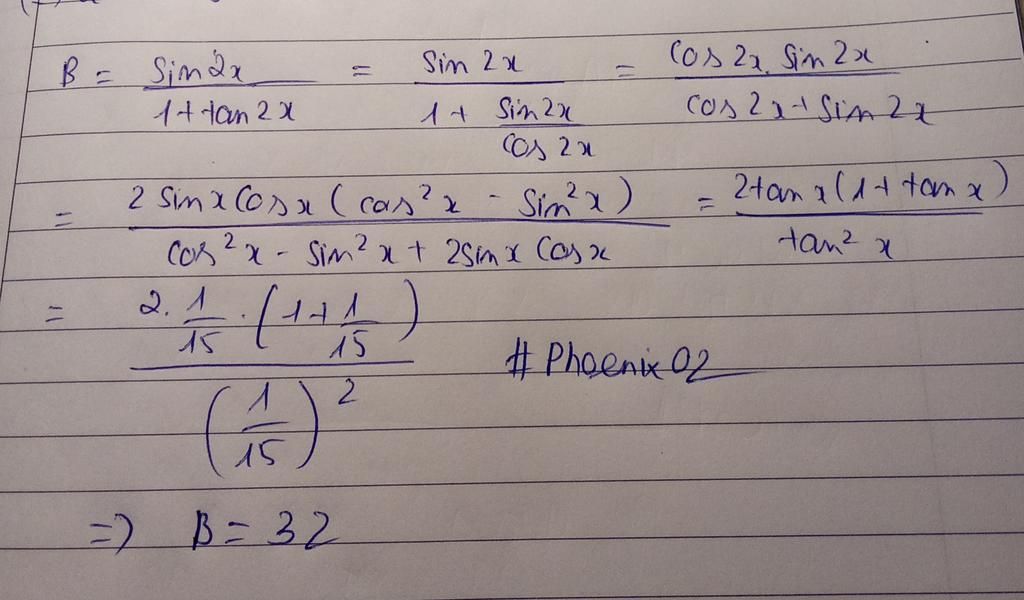 B = sin 2x / 1 + tan 2x = sin 2x / 1 + sin 2x / cos 2x = cos 2x . sin 2x / cos 2x + sin 2x
= 2 sin x cos x ( cos² x - sin² x ) / cos² x - sin² x + 2sin x cos x = 2tan x ( 1 + tan x ) / tan² x
= 2 . 1/15 . ( 1 + 1/15 ) / ( 1/15 )²
# Phoenix 02
=> B = 32